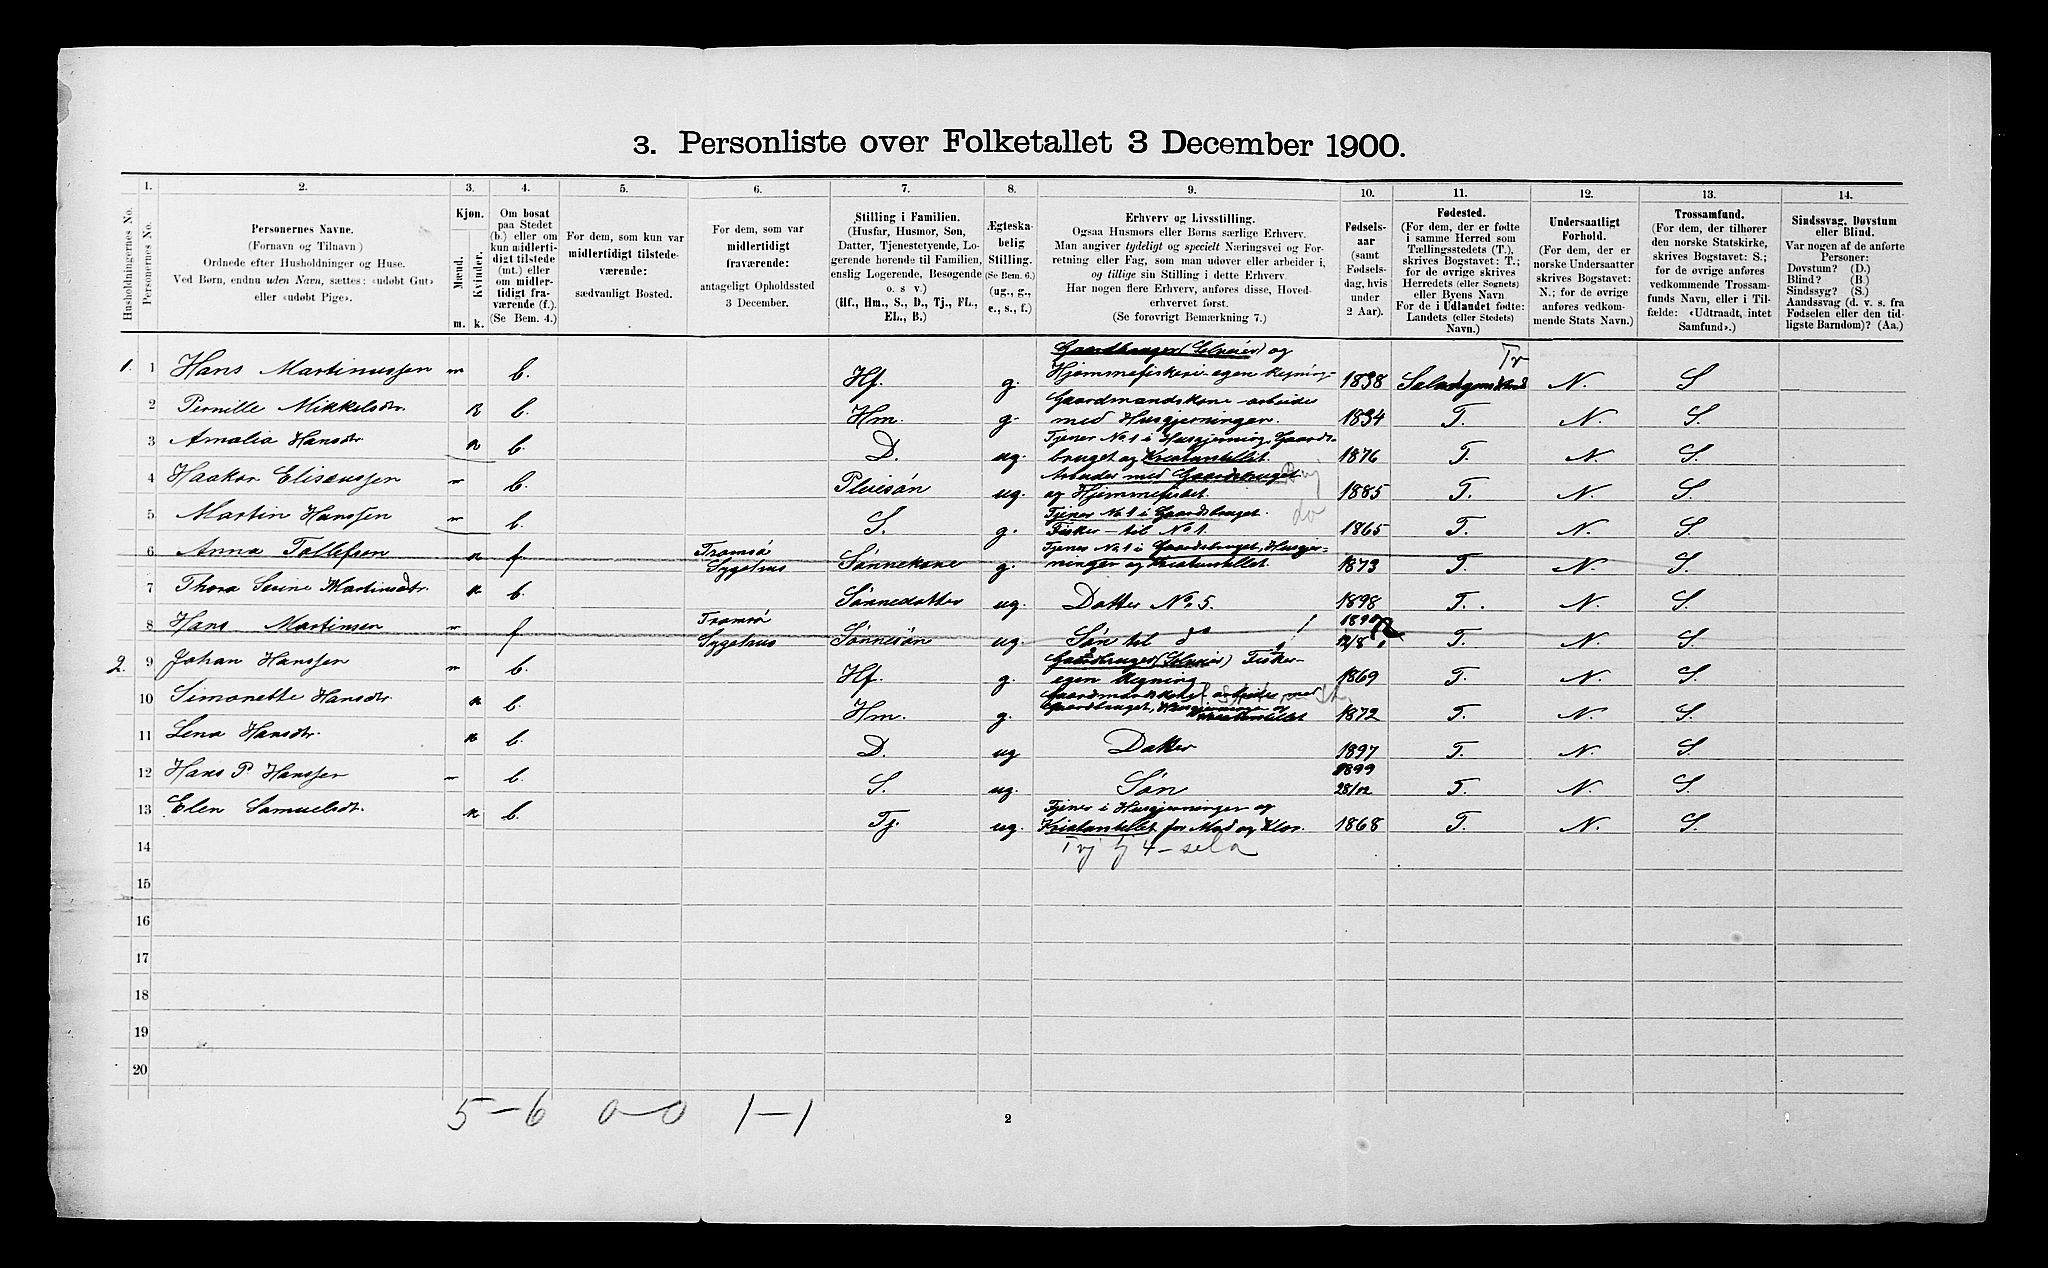 3. Personliste over Folketallet 3 December 1900.
1. 2. 3. 4. 5. 6. 7. 8. 9. 10. 11. 12. 13. 14.
Husholdningernes No.
Personernes No.
Personernes Navne.
(Fornavn og Tilnavn)
Ordnede efter Husholdninger og Huse.
Ved Børn, endnu uden Navn, sættes: «udøbt Gut»
eller «udøbt Pige».
Kjøn.
Mænd. Kvinder.
m. k.
Om bosat
paa Stedet
(b.) eller om
kun midlerti-
digt tilstede
(mt.) eller
om midler-
tidigt fra-
værende (f.).
(Se Bem. 4.)
For dem, som kun var
midlertidigt tilstede-
værende:
sædvanligt Bosted.
For dem, som var
midlertidigt
fraværende:
antageligt Opholdssted
3 December.
Stilling i Familien.
(Husfar, Husmor, Søn,
Datter, Tjenestetyende, Lo-
gerende hørende til Familien,
enslig Logerende, Besøgende
o. s v.)
(Hf., Hm., S., D., Tj., FL.,
EL., B.)
Ægteska-
belig
Stilling.
(Se Bem. 6.)
(ug., g.,
e., s., f.)
Erhverv og Livsstilling.
Ogsaa Husmors eller Børns særlige Erhverv.
Man angiver tydeligt og specielt Næringsvei og For-
retning eller Fag, som man udøver eller arbeider i,
og tillige sin Stilling i dette Erhverv.
Har nogen flere Erhverv, anføres disse, Hoved-
erhvervet først.
(Se forøvrigt Bemærkning 7.)
Fødsels-
aar
(samt
Fødsels-
dag, hvis
under
2 Aar).
Fødested.
(For dem, der er fødte
i samme Herred som
Tællingsstedets (T.),
skrives Bogstavet: T.;
for de øvrige skrives
Herredets (eller Sognets)
eller Byens Navn
For de i Udlandet fødte:
Landets (eller Stedets)
Navn.)
Undersaatligt
Forhold.
(For dem, der er
norske Undersaatter
skrives Bogstavet:
N.; for de øvrige
anføres vedkom-
mende Stats Navn.)
Trossamfund.
(For dem, der tilhører
den norske Statskirke,
skrives Bogstavet: S.;
for de øvrige anføres
vedkommende Trossam-
funds Navn, eller i Til-
fælde: «Udtraadt, intet
Samfund».)
Sindssvag, Døvstum
eller Blind.
Var nogen af de anførte
Personer:
Døvstum? (D.)
Blind? (B.)
Sindssyg? (S.)
Aandssvag (d. v. s. fra
Fødselen eller den tid-
ligste Barndom)? (Aa.)
1. 1 Hans Martinussen m b. Hf. g. Gaardbruger (Selveier) og Hjemmefiskeri-egen Regning- 1838 Tr N. S.
2 Pernille Mikkelsdtr. k b. Hm. g. Gaardmandskone-arbeider med Husgjerninger. 1834 T. N. S.
3 Amalia Hansdtr k b. D. ug. Tjener No. 1 i Husgjerning, Gaards- bruget og Kreaturstellet. 1876 T. N. S.
4 Haakon Elisæussen m b. Pleiesøn ug. Arbeider med Gaardsbruget og Hjemmefisket. 1885 T. N. S.
5 Martin Hanssen m b. S. g. Tjener No. 1 i Gaardsbruget. Fisker - til No 1. do 1865 T. N. S.
6 Anna Tollefsen k f Tromsö Sygehus Sønnekone g. Tjener No. 1 i Gaardsbruget, Husgjer- ninger og Kreaturstellet. 1873 T. N. S.
7 Thora Serine Martinsdtr. k b. Sønnedatter ug. Datter No. 5. 1898 T. N. S.
8 Hans Martinsen m f Tromsö Sygehus Sønnesøn ug. Søn til do 12/8 T. N. S.
2. 9 Johan Hanssen m b. Hf. g. Gaardbruger (Selveier) Fisker- egen Regning 1869 T. N. S.
10 Simonette Hansdtr. k b. Hm. g. arbeider med Gaardbruget, Husgjerninger og Kreaturstellet 1872 T. N. S.
11 Lena Hansdtr. k b. D. ug Datter 1897 T. N. S.
12 Hans P Hanssen m b. S. ug. Søn 1899 28/12 T. N. S.
13 Elen Samuelsdtr. k b. Tj. ug. Tjener i Husgjerninger og Kreaturstellet for Mad og Klær. 1868 T. N. S.
14
15
16
17
18
19
20
5-6 0-0 1-1
2